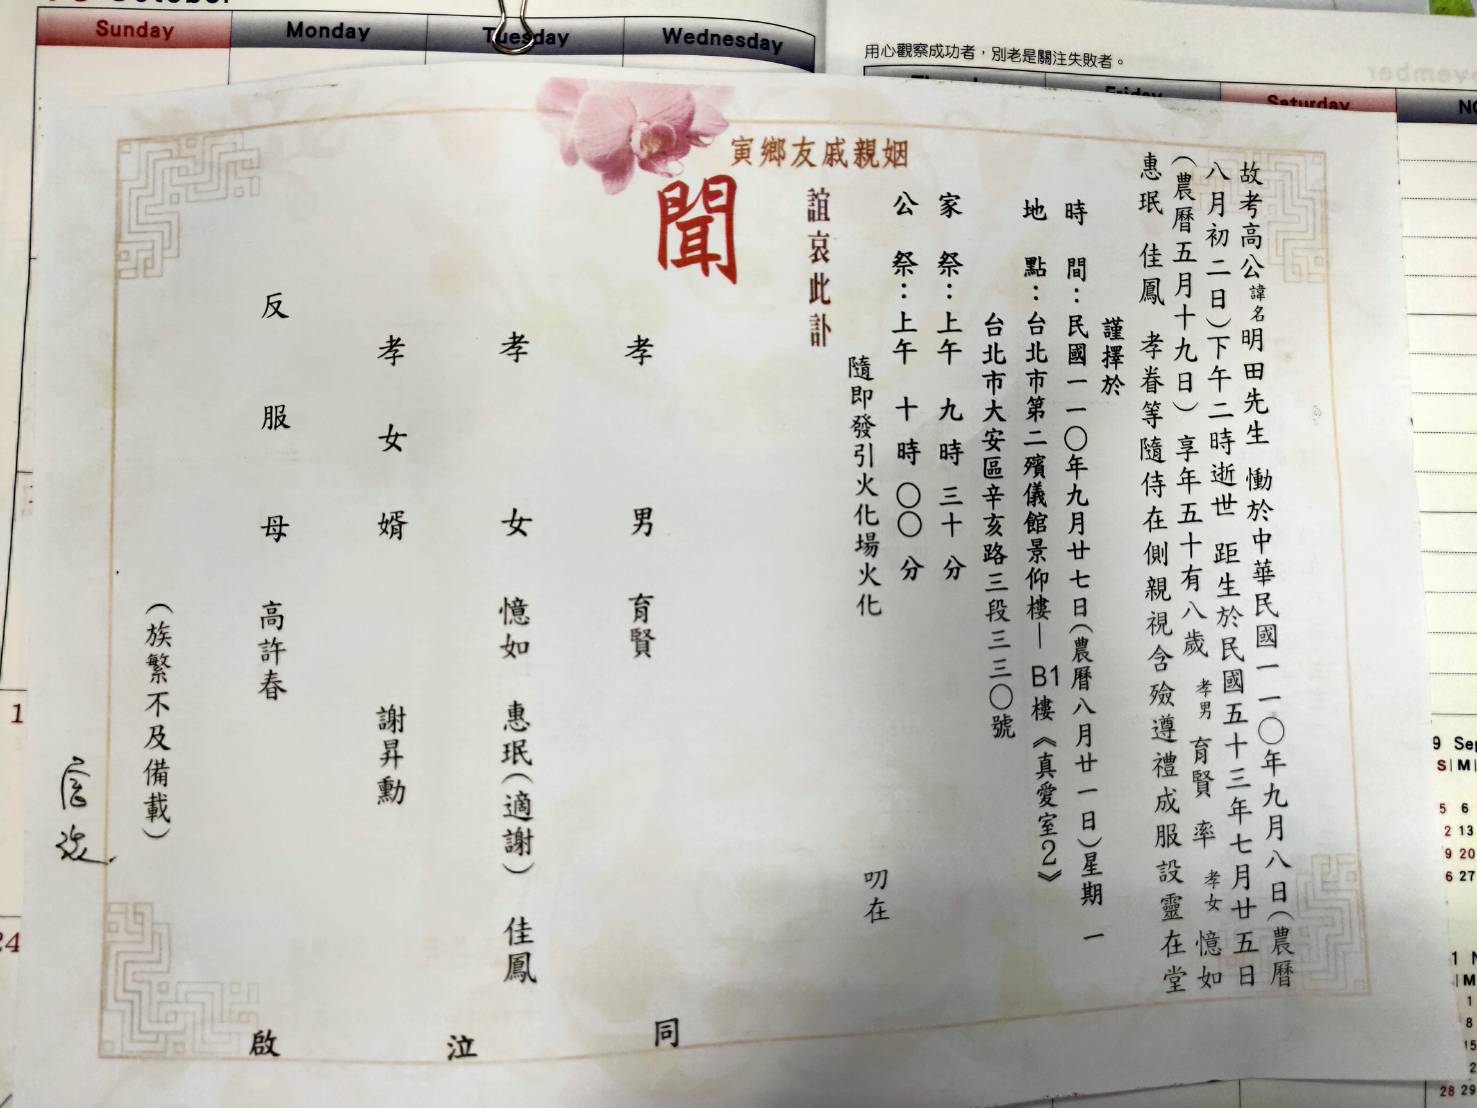 October
Sunday
Monday
Tuesday
Wednesday
用心觀察成功者，別老是關注失敗者。
Friday
Saturday
故考高公諱名明田先生 慟於中華民國一一〇年九月八日(農曆
八月初二日)下午二時逝世 距生於民國五十三年七月廿五日
(農曆五月十九日)享年五十有八歲 孝男 育賢 率 孝女 憶如
惠珉 佳鳳 孝眷等隨侍在側親視含殮遵禮成服設靈在堂
謹擇於
時 間:民國一一〇年九月廿七日(農曆八月廿一日)星期一
地 點:台北市第二殯儀館景仰樓— B1樓《真愛室2》
台北市大安區辛亥路三段三三〇號
家 祭:上午 九時三十分
公 祭:上午 十時〇〇分
隨即發引火化場火化
叨在
寅鄉友戚親姻
誼哀此訃
聞
孝 男 育賢
孝 女 憶如 惠珉(適謝) 佳鳳
孝女婿 謝昇勳
反服母 高許春
(族繁不及備載)
同
泣
啟
1
24
9 Sep
S M
5 6
2 13
9 20
6 27
28 29